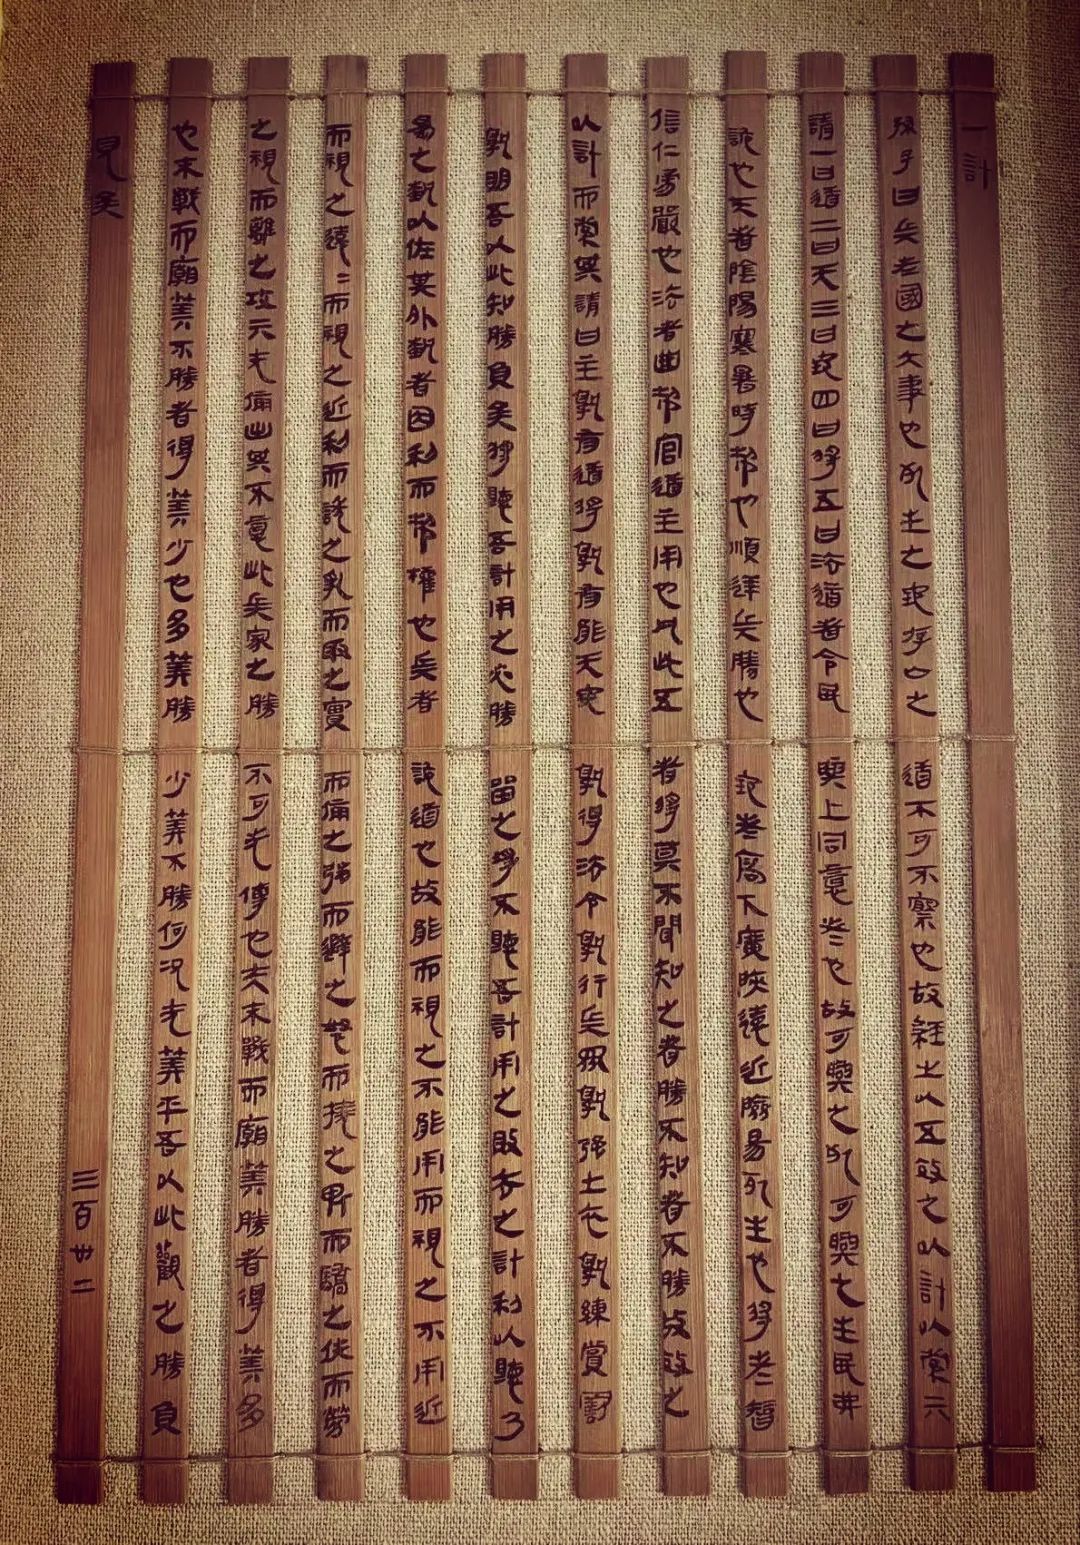 一計
孫子曰兵者國之大事也死生之地存亡之道不可不察也故經之以五效之以計以索亓
請一曰道二曰天三曰地四曰將五曰法道者令民與上同意者也故可與之死可與之生民弗
詭也天者陰陽寒暑時制也順逆兵勝也地者高下廣陝遠近險易死生也將者智
信仁勇嚴也法者曲制官道主用也凡此五者將莫不聞知之者勝不知者不勝故效之
以計而索其請曰主孰有道將孰有能天地孰得法令孰行兵眾孰强士卒孰練賞罰
孰明吾以此知勝負矣將聽吾計用之必勝留之將不聽吾計用之敗去之計利以聽乃
為之埶以佐其外埶者因利而制權也兵者詭道也故能而視之不能用而視之不用近
而視之遠=而視之近利而誘之亂而取之實而備之强而避之怒而撓之卑而驕之佚而勞
之親而離之攻亓无備出其不意此兵家之勝不可先傳也夫未戰而廟筭勝者得筭多
也未戰而廟筭不勝者得筭少也多筭勝少筭不勝何況无筭乎吾以此觀之勝負
見矣 三百廿二